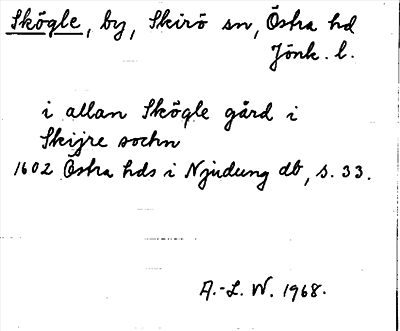 Skögle, by, Skirö sn, Östra hd
Jönk. l.
i allan Skögle gård i
Skijre sochn
1602 Östra hds i Njudung db, s. 33.
A.-L. W. 1968.